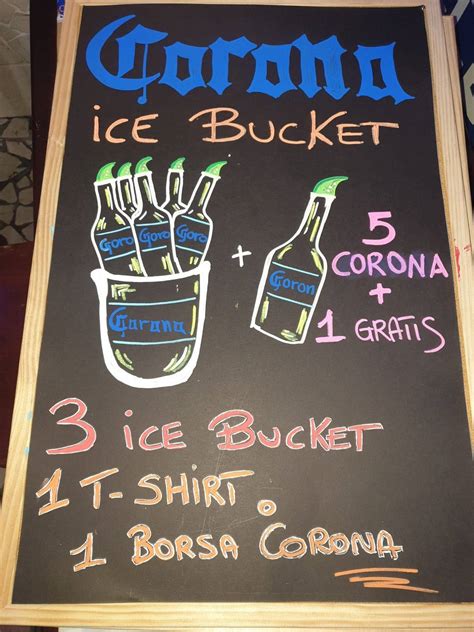 Corona
ICE BUCKET
Coro Coro Coro
Corona
+
Coron
5
CORONA
+
1 GRATIS
3 ICE BUCKET
1 T-SHIRT o
1 BORSA CORONA